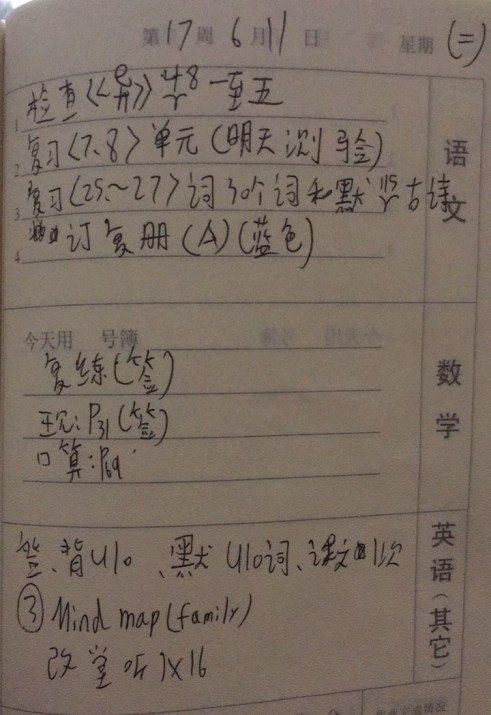 第17周 6月11日 星期(二)
检查《册》P48 一至五
1
复习〈7、8〉单元(明天测验)
2
复习〈25~27〉词30个词和默 古诗
3
订复册(A)(蓝色)
4
语文
今天用 号簿
复练(签)
P31(签)
口算:P69
数学
签、背U10、默U10词、课文 1次
③Mind map(family)
改堂听1X16
英语(其它)